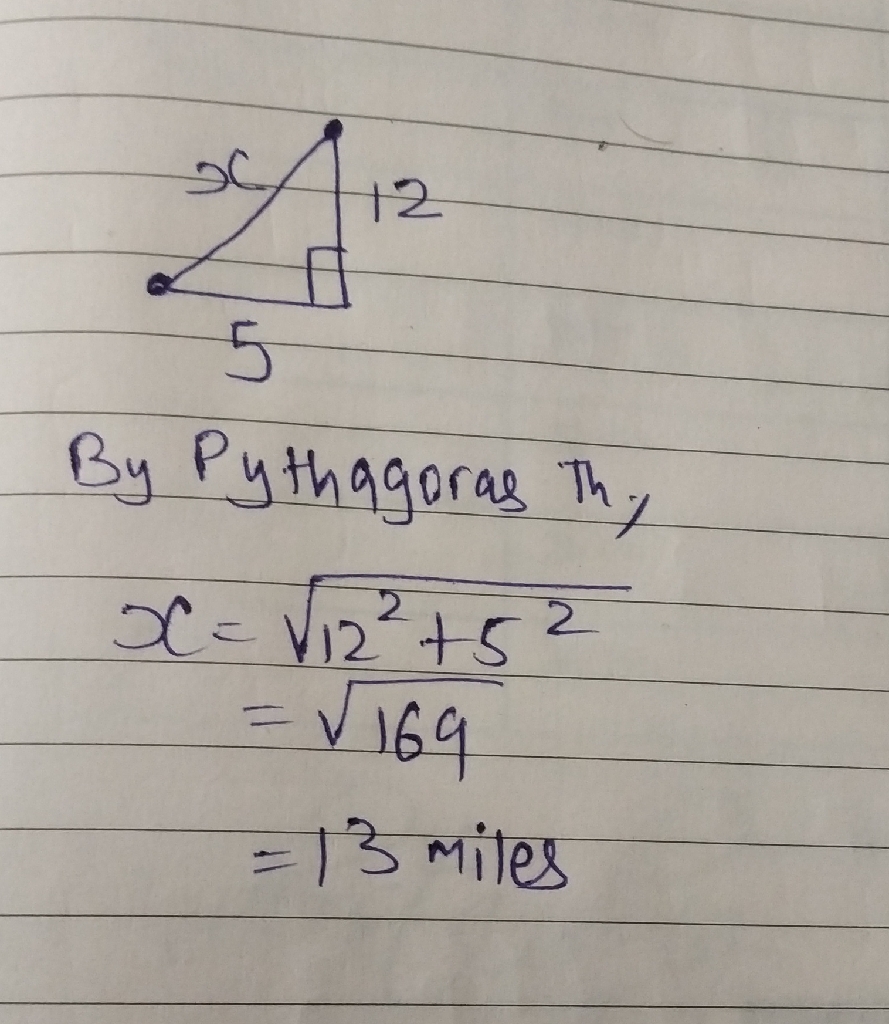 x
12
5
By Pythagoras Th,
x = √12² + 5²
= √169
= 13 miles